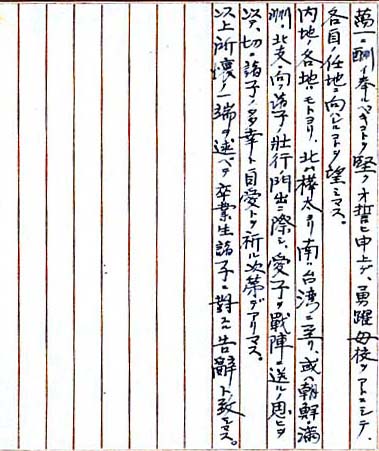 萬一ニ酬イ奉ルベキコトヲ堅クオ誓ヒ申上ゲ、勇躍母校ヲアトニシテ、
各自ノ任地ニ向ハレンコトヲ望ミマス。
内地ノ各地ハモトヨリ、北ハ樺太ヨリ南ハ台湾ニ至リ、或ハ朝鮮・満
洲、北支ニ向フ諸子ノ壮行ノ門出ニ際シ、愛子ヲ戰陣ニ送ルノ思ヒヲ
以テ、切ニ諸子ノ多幸ト自愛トヲ祈ル次第デアリマス。
以上所懐ノ一端ヲ述ベテ卒業生諸子ニ對スル告辭ト致シマス。